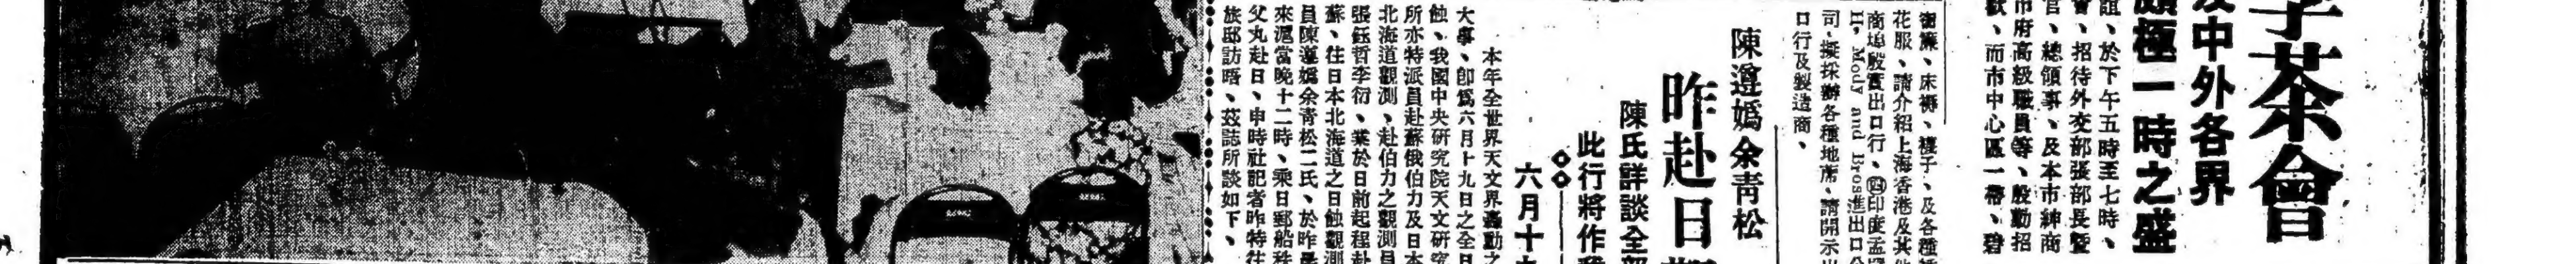 字茶會
及中外各界
頗極一時之盛
誼、於下午五時至七時、
會、招待外交部張部長暨
官、總領事、及本市紳商
市府高級職員等、殷勤招
歡、而市中心區一帶、碧
窗簾、床褥、毯子、及各種
花服、請介紹上海香港及其他
商埠殷實出口行、㈣印度孟
H. Mody and Bros進出口公
司、擬採辦各種地蓆、請開示出
口行及製造商、
陳遵嬀余青松
昨赴日
陳氏詳談全部
此行將作
六月十九
本年全世界天文界轟動之
大事、卽爲六月十九日之全日
蝕、我國中央研究院天文研究
所亦特派員赴蘇俄伯力及日本
北海道觀測、赴伯力之觀測員
張鈺哲李衍、業於日前起程赴
蘇、往日本北海道之日蝕觀測
員陳遵嬀余青松二氏、於昨晨
來滬當晚十二時、乘日郵船秩
父丸赴日、申時社記者昨特往
旅邸訪晤、茲誌所談如下、